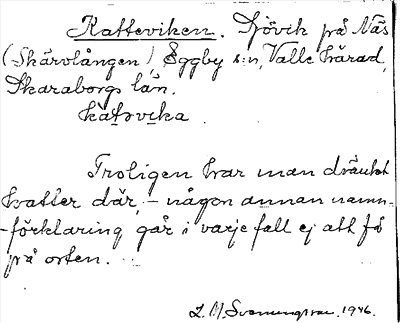 Katteviken. Sjövik på Näs
(Skärvlången), Eggby s:n, Valle härad,
Skaraborgs län.
kàtəvika
Troligen har man dränkt
katter där, - någon annan namn-
-förklaring går i varje fall ej att få
på orten.
L. M. Svenungsson. 1946.